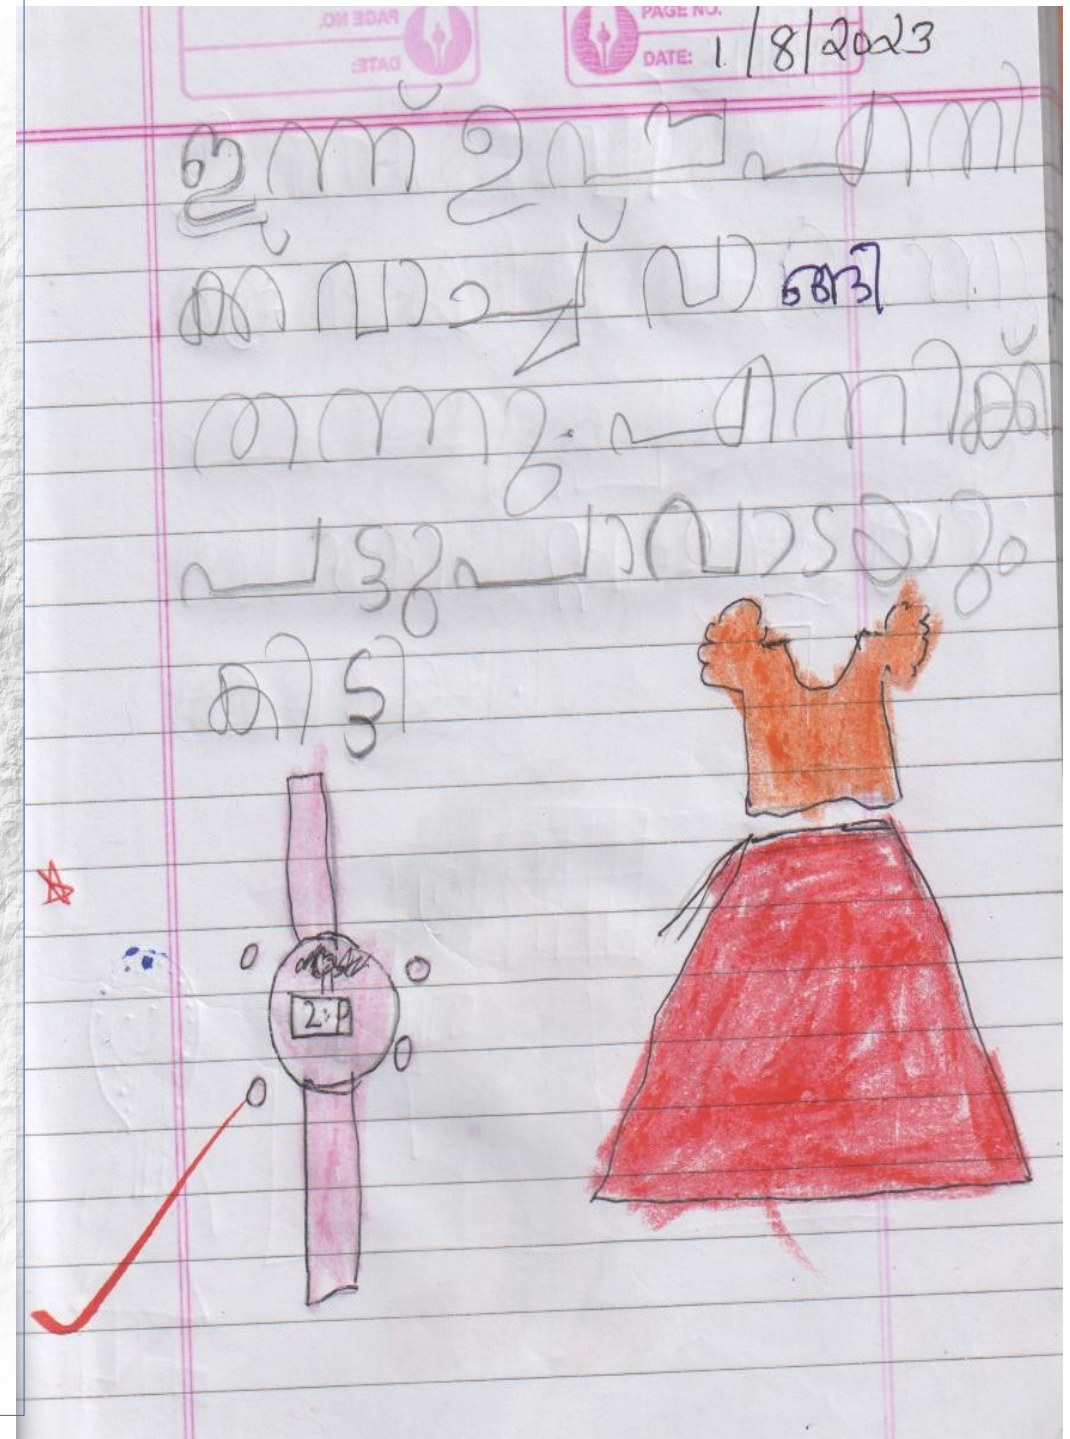 PAGE NO.
DATE: 1/8/2023
ഇന്ന് ഉപ്പ എനി
ക്ക് വാച്ച് വാ ങ്ങി
തന്നു. എന്നിക്ക്
പട്ടുപാവാടയും
കിട്ടി
2:P